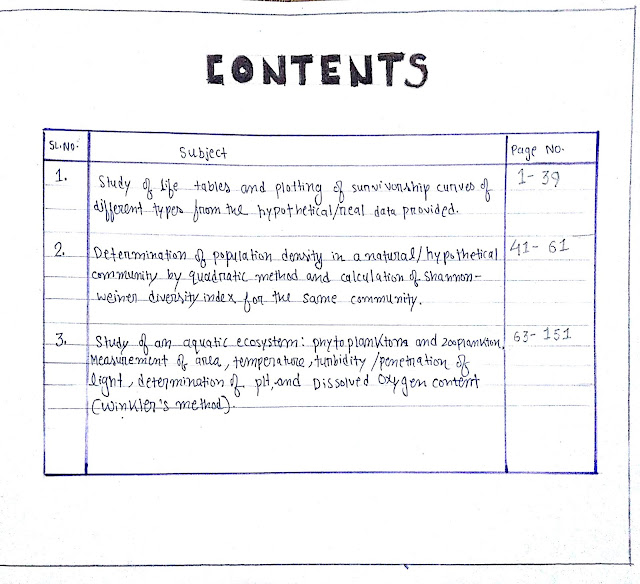 CONTENTS
SL.NO: Subject Page No.
1. Study of life tables and plotting of survivorship curves of 1- 39
different types from the hypothetical/real data provided.
2. Determination of population density in a natural/hypothetical 41- 61
community by quadratic method and calculation of Shannon-
weiner diversity index for the same community.
3. Study of an aquatic ecosystem: phytoplanktom and zooplankton, 63- 151
Measurement of area, temperature, turbidity/penetration of
light, determination of pH, and Dissolved Oxygen content
(Winkler's method).